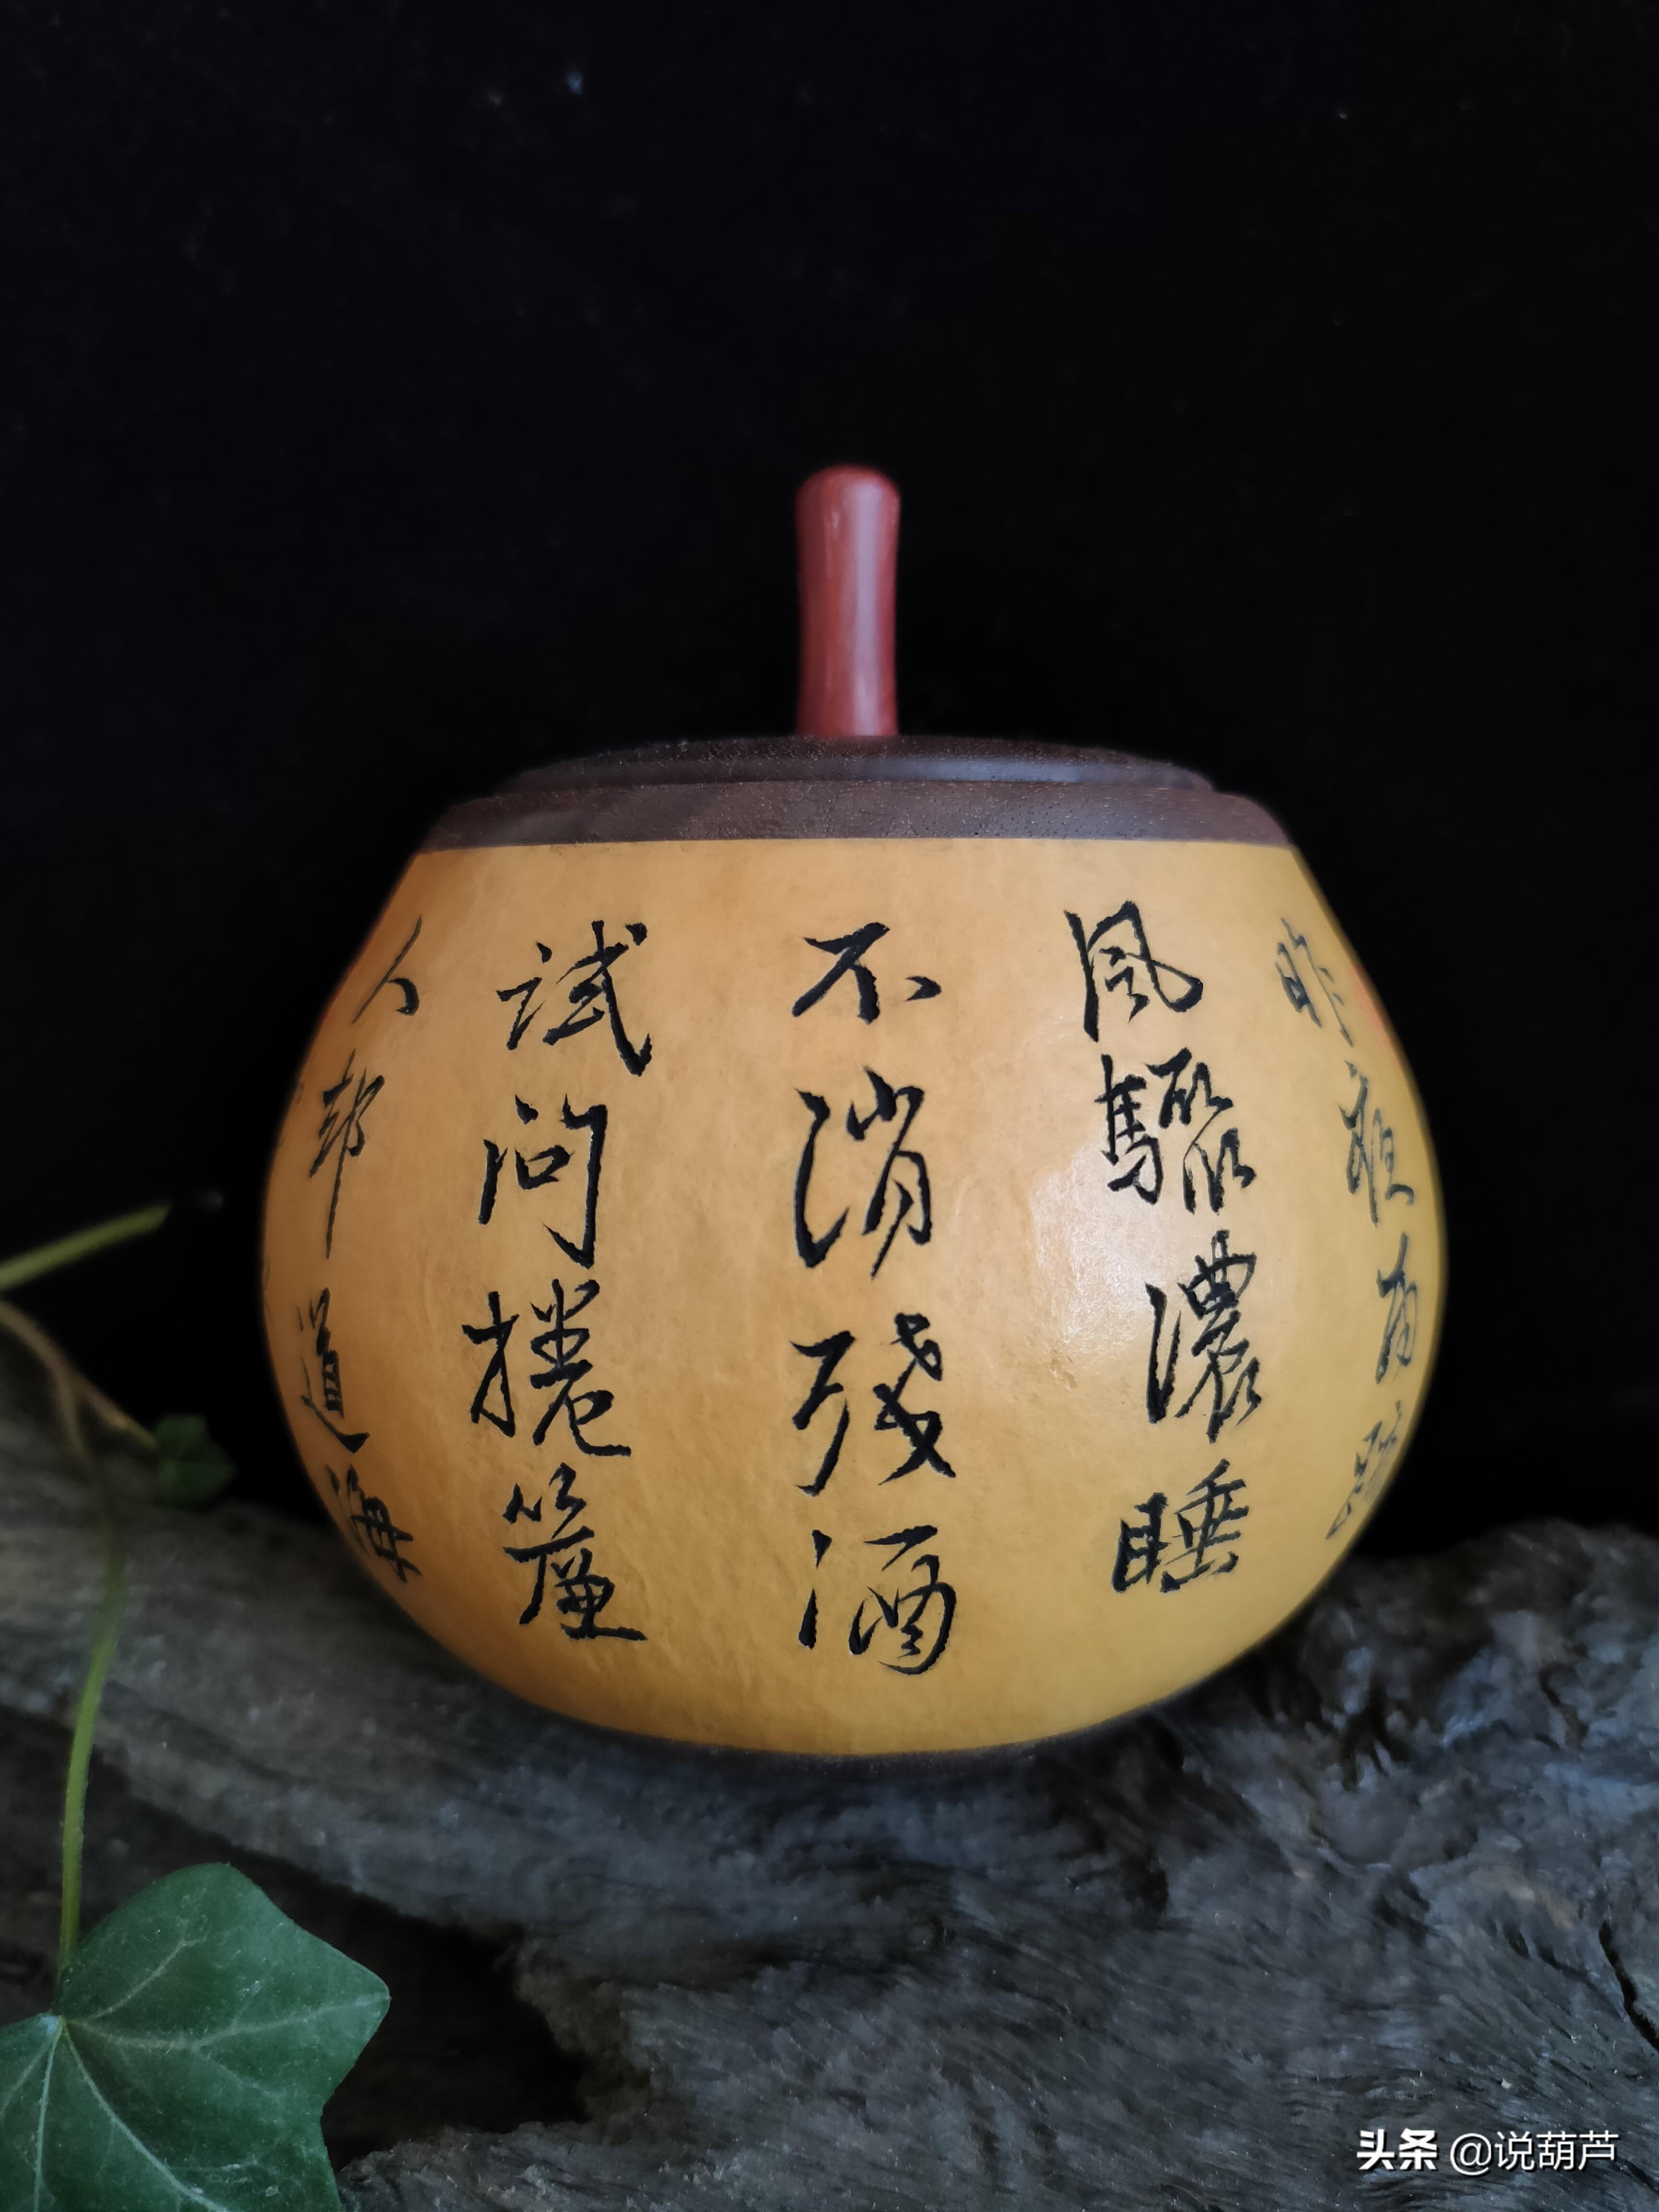 昨夜雨疏
風驟濃睡
不消殘酒
試問捲簾
人却道海
头条 @说葫芦